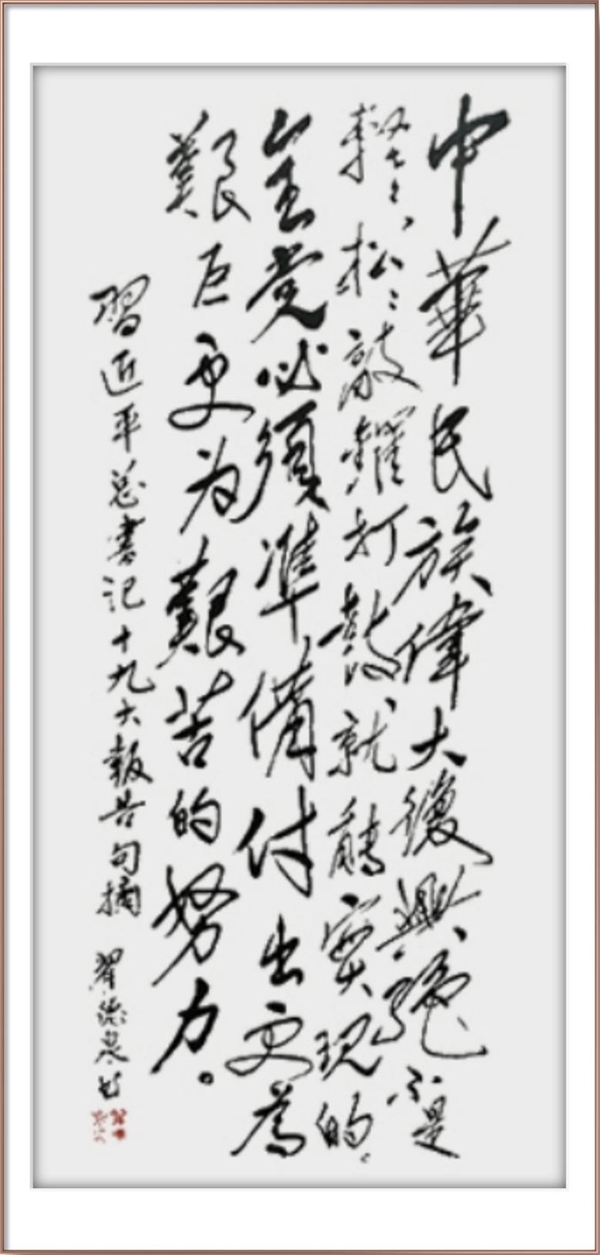 中華民族偉大復興絕不是
輕々松々敲鑼打鼓就能實現的。
全党必須準備付出更為
艱巨更为艱苦的努力。
習近平总書記十九大報告句摘 翟德泉书